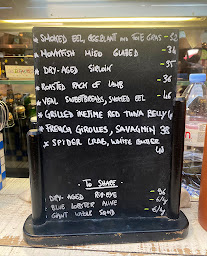 * SMOKED EEL, EGGPLANT AND FOIE GRAS - 32
* MONKFISH MISO GLAZED - 34
* DRY-AGED SIRLOIN - 35
* ROASTED RACK OF LAMB - 36
* VEAL SWEETBREADS, SMOKED EEL - 46
* GRILLED IKEJIME RED TUNA BELLY
* FRENCH GIROLLES, SAVAGNIN 38
* SPIDER CRAB, WHITE
TO SHARE
- DRY-AGED RIB-EYE - 96
- BLUE LOBSTER ALIVE
- GIANT WHOLE SQUID